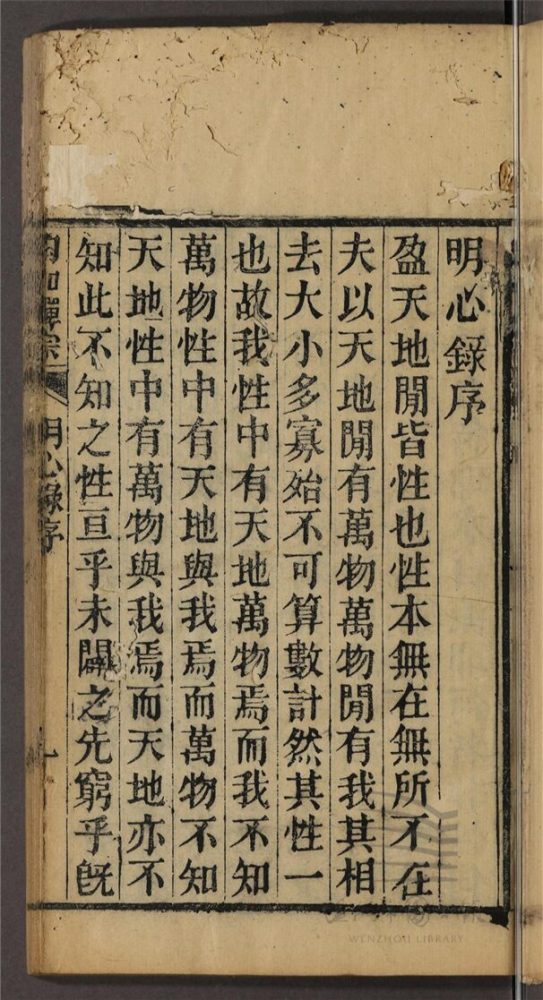 明心錄序
盈天地閒皆性也性本無在無所不在
夫以天地閒有萬物萬物閒有我其相
去大小多寡始不可算數計然其性一
也故我性中有天地萬物焉而我不知
萬物性中有天地與我焉而萬物不知
天地性中有萬物與我焉而天地亦不
知此不知之性亘乎未闢之先窮乎旣
禪宗 明心錄序 一
WENZHOU LIBRARY